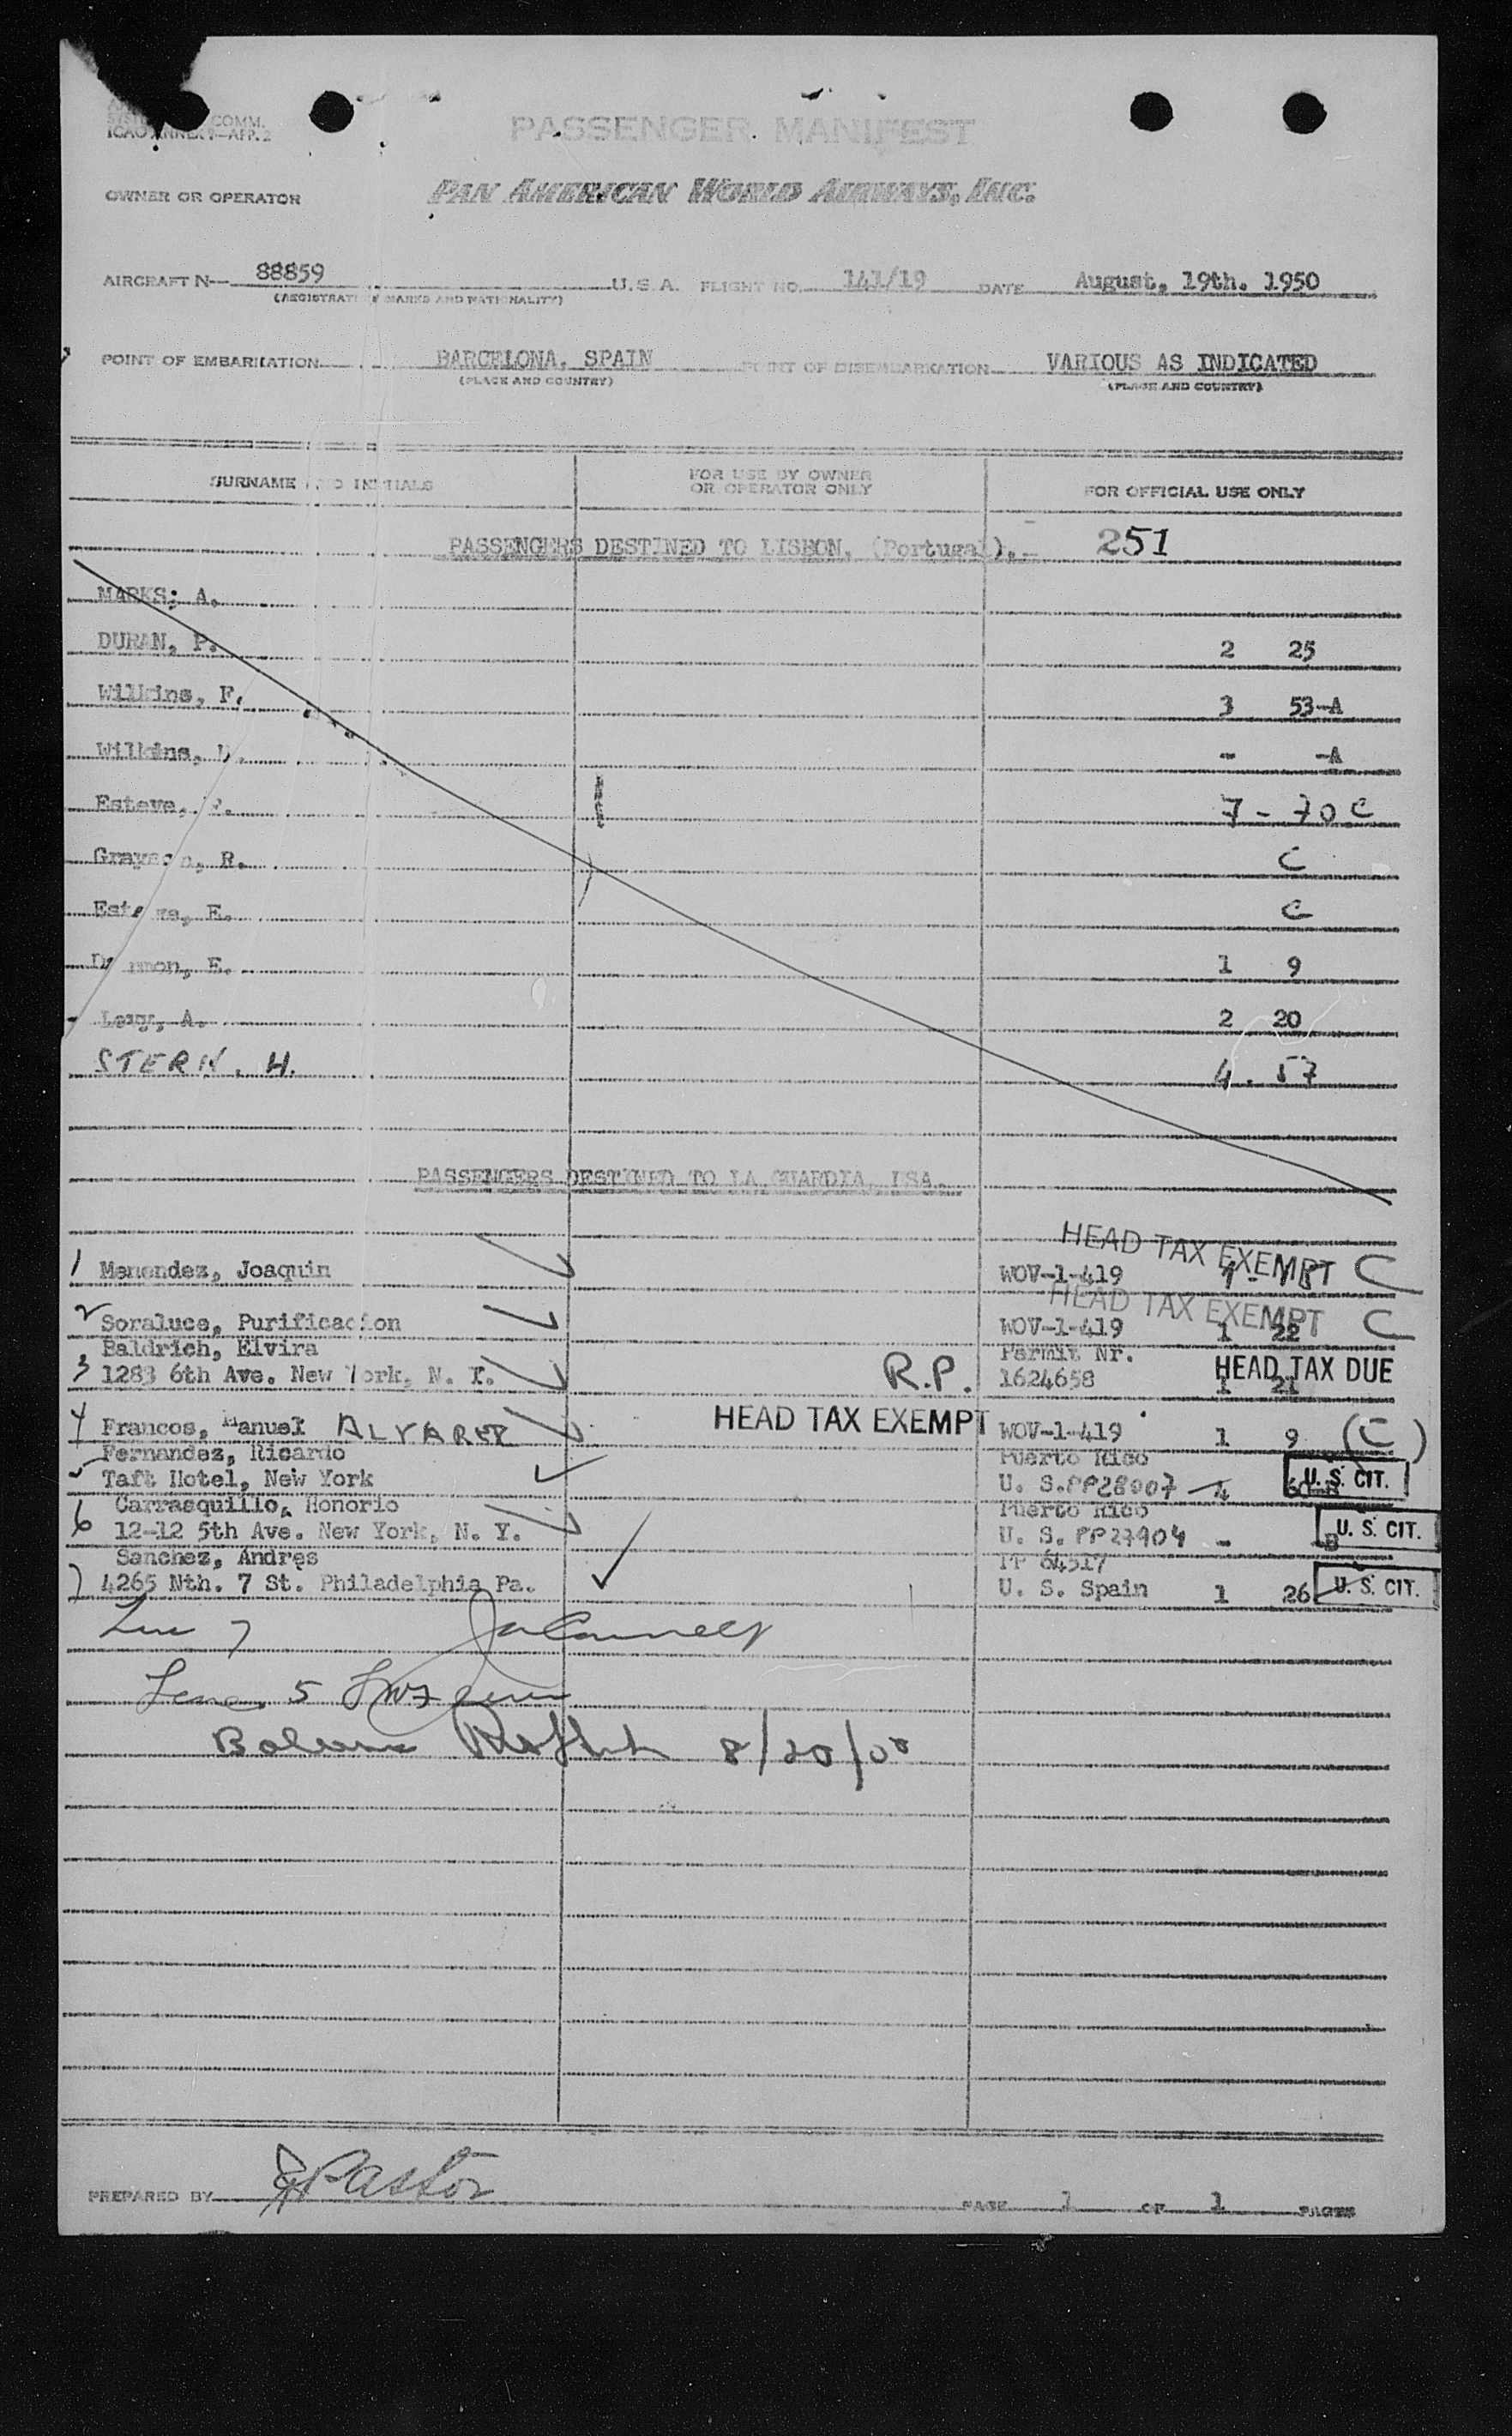 COMM.
ICAO ANNEX 9—APP. 2
PASSENGER MANIFEST
OWNER OR OPERATOR PAN AMERICAN WORLD AIRWAYS, INC.
AIRCRAFT N— 88859 U. S. A. FLIGHT NO. 141/19 DATE August, 19th. 1950
(REGISTRATION MARKS AND NATIONALITY)
POINT OF EMBARKATION BARCELONA, SPAIN POINT OF DISEMBARKATION VARIOUS AS INDICATED
(PLACE AND COUNTRY) (PLACE AND COUNTRY)
SURNAME AND INITIALS FOR USE BY OWNER OR OPERATOR ONLY FOR OFFICIAL USE ONLY
PASSENGERS DESTINED TO LISBON, (Portugal).- 251
MARKS; A.
DURAN, P. 2 25
Wilkins, F. 3 53-A
Wilkins, - -A
Esteve, 7 - 70 C
Grayson, R. C
Esteve, E. C
E. 1 9
Levy, A. 2 20
STERN, H. 4 . 57
PASSENGERS DESTINED TO LA GUARDIA, USA.
HEAD TAX EXEMPT C
1 Menendez, Joaquin WOV-1-419
HEAD TAX EXEMPT C
2 Soraluce, Purificacion WOV-1-419 1 22
Baldrich, Elvira Permit Nr.
3 1283 6th Ave. New York, N. Y. R.P. 1624658 HEAD TAX DUE 1 21
4 Francos, Manuel ALVAREZ HEAD TAX EXEMPT WOV-1-419 1 9 (C)
Fernandez, Ricardo Puerto Rico
5 Taft Hotel, New York U. S. PP28007 4 U. S. CIT.
Carrasquillo, Honorio Puerto Rico
6 12-12 5th Ave. New York, N. Y. U. S. PP27904 - -B U. S. CIT.
Sanchez, Andres PP 64517
7 4265 Nth. 7 St. Philadelphia Pa. U. S. Spain 1 26 U. S. CIT.
7
5
8/20/50
PREPARED BY Pastor PAGE 1 OF 1 PAGES